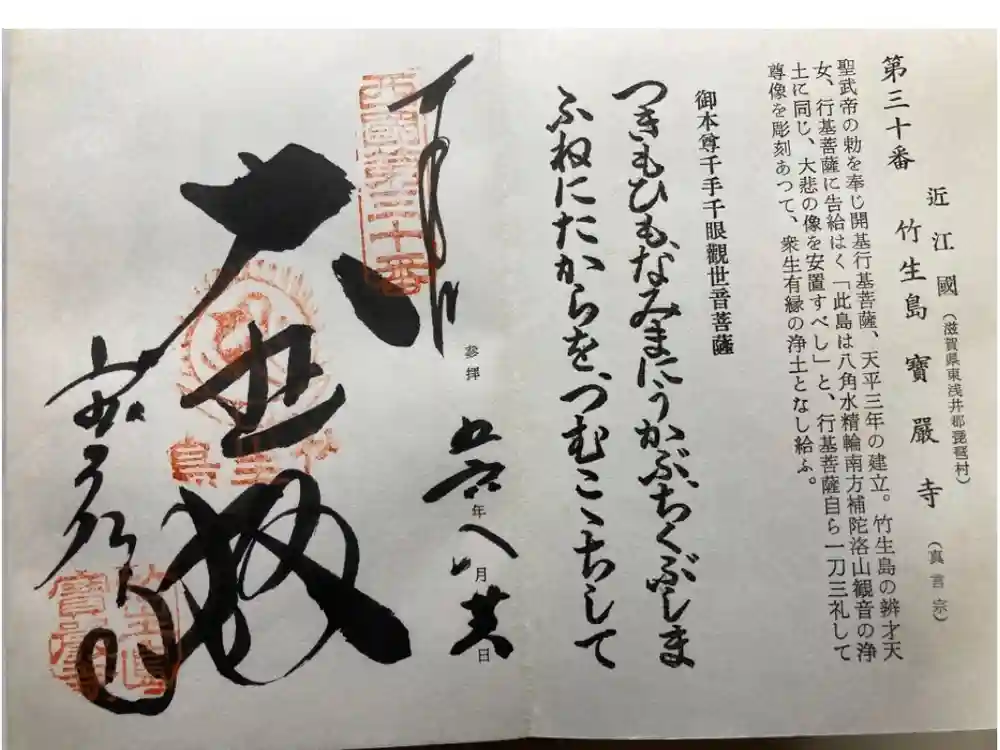 第三十番
近江國(滋賀県東浅井郡琵琶村)
竹生島 寶嚴寺(真言宗)
聖武帝の勅を奉じ開基行基菩薩、天平三年の建立。竹生島の辨才天
女、行基菩薩に告給はく「此島は八角水精輪南方補陀洛山観音の浄
土に同じ、大悲の像を安置すべし」と、行基菩薩自ら一刀三礼して
尊像を彫刻あつて、衆生有縁の浄土となし給ふ。
御本尊千手千眼觀世音菩薩
つきもひも、なみまにうかぶ、ちくぶしま
ふねにたからを、つむこゝちして
奉拝
参拝 五六年八月廿八日
西國第三十番
大悲殿
竹生島
宝厳寺
竹生島
寶嚴寺